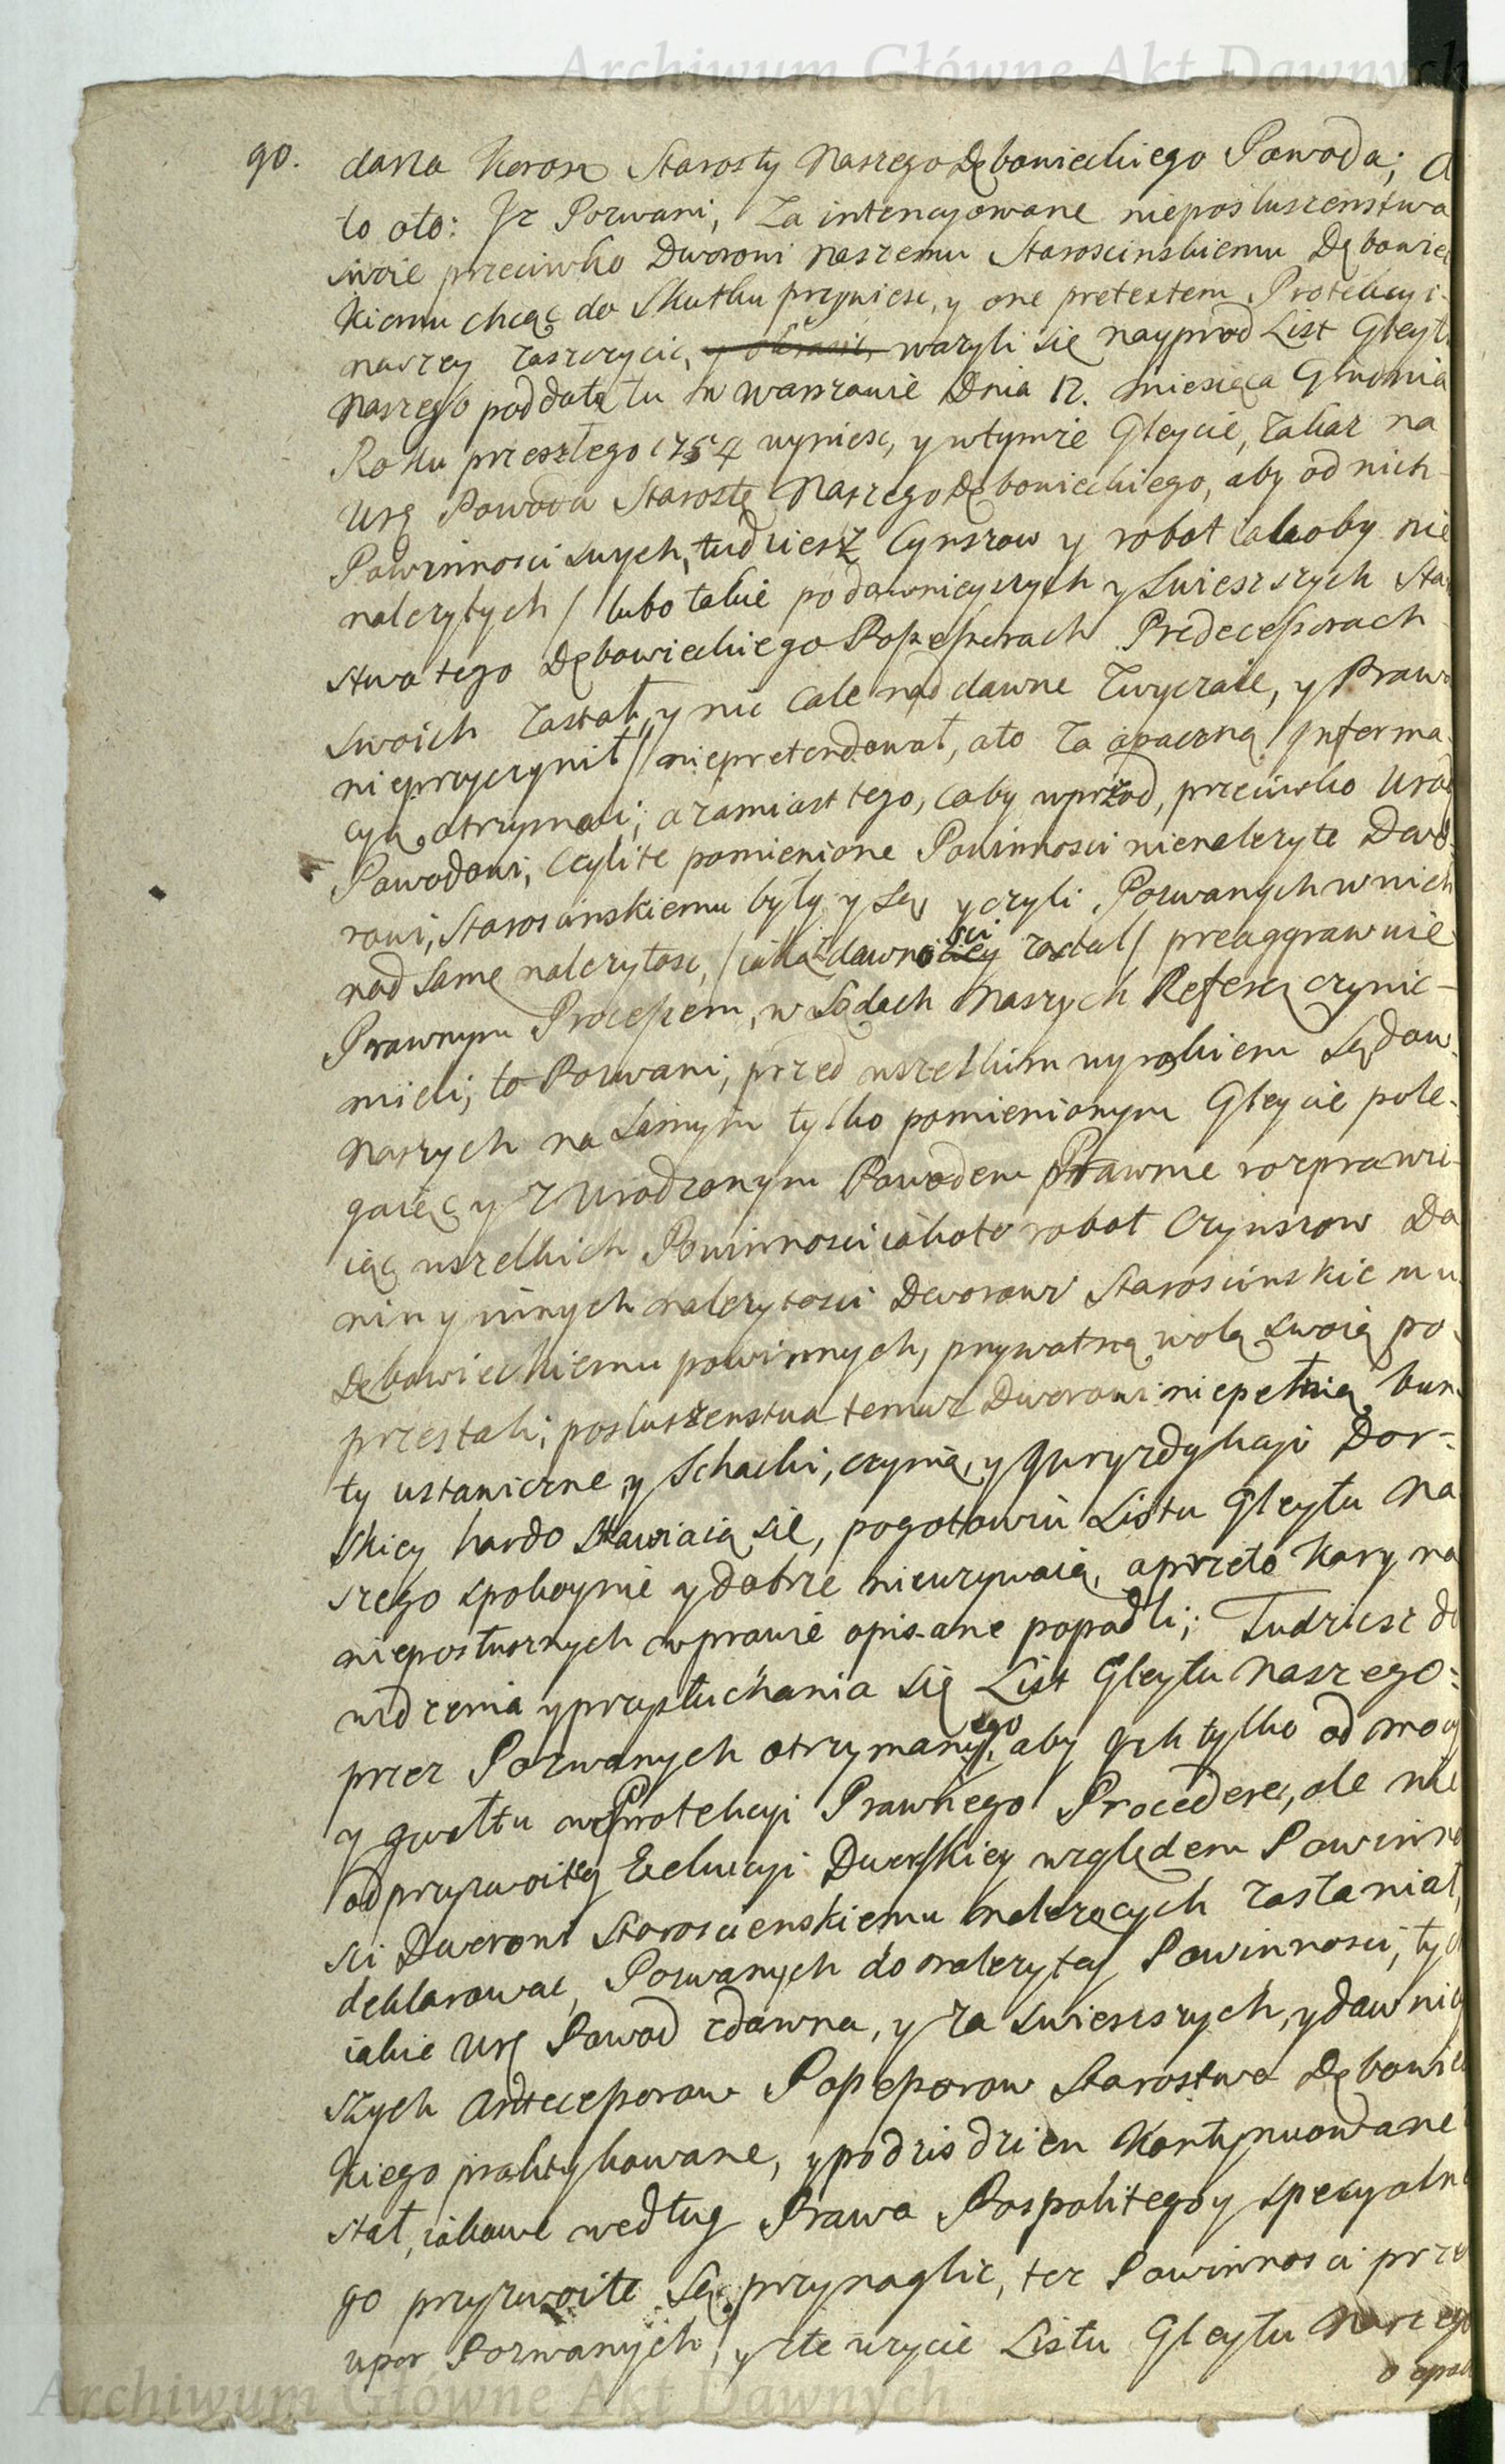 Archiwum Główne Akt Dawnych
90. dana Koron Starosty Naszego Dębowieckiego Powoda; A
to oto: Jż Pozwani, Za intencyowane nieposłuszenstwa
swoie przeciwko Dworowi naszemu Staroscinskiemu Dębowiec
kiemu chcąc do Skutku przyniesc, y one pretextem Protekcyi
naszey zaszczycic, ważyli się nayprod List Gleytu
Naszego pod datą tu w Warszawie Dnia 12. miesiąca Grudnia
Roku przeszłego 1754 wyniesc, y wtymże Gleycie, zakaz na
Urg Powoda Starostę Naszego Dębowieckiego, aby od nich
Powinnosci swych, tudziesz Cynszow y robot iakoby nie
należytych / lubo takie po dawnieyszych y swieższych Sta
stwa tego Dębowieckiego Possessorach Predecessorach
swoich zastał, y nic cale nad dawne zwyczaie, y Prawo
nieprzyczynił / niepretendował, ato za opaczną Jnforma
cyą otrzymali; a zamiast tego, coby wprzod, przeciwko Urod
Powodowi, Czylite pomienione Powinnosci nienależyte Dwo
rowi, Staroscinskiemu były y są y czyli Pozwanych w nich
nad samę należytosc, / iako z dawnosci zastał / preaggrawuie
Prawnym Processem, w Sądach Naszych Refesą czynic
mieli, to Pozwani, przed wszelkim wyrokiem Sądow
Naszych na samym tylko pomienionym Gleycie pole-
gaiąc y z Urodzonym Powodem Prawnie rozprawu
iąc wszelkich Powinnosci iakoto robot Czynszow Da
nin y innych należytosci Dworowi Staroscinskiemu
Dębowieckiemu powinnych, prywatną wolą swoią po-
przestali; posłuszenstwa temuż Dworowi niepełnią bun
ty ustawiczne, y Schadki, czynią, y Juryzdykcyi Dor-
skiey hardo stawiaią się, pogotowiu Listu Gleytu Na
szego spokoynie y dobrze nieużywaią, aprzeto kary na
nieposłusznych wprawie opisane popadli; Tudziesz do
widzenia yprzysłuchania się List Gleytu Naszego
przez Pozwanych otrzymanego, aby Jch tylko od mocy
y gwałtu w Protekcyi Prawnego Procedere, ale nie
od przyzwoitey Exekucyi Dworskiey względem Powinno
sci Dworowi Staroscienskiemu należących zasłaniał,
deklarowac, Pozwanych do należytey Powinnosci, tych
iakie Urg Powod zdawna, y za swiesszych, y dawniey
szych Antecessorow Possessorow Starostwa Dębowiec
kiego praktykowane, y podzis dzien kontynuowane
stał, iakowe według Prawa Pospolitego y specyalne
go przyzwoite są, przynaglic, też Powinnosci przez
upor Pozwanych, y złe użycie Listu Gleytu Naszego
Archiwum Główne Akt Dawnych